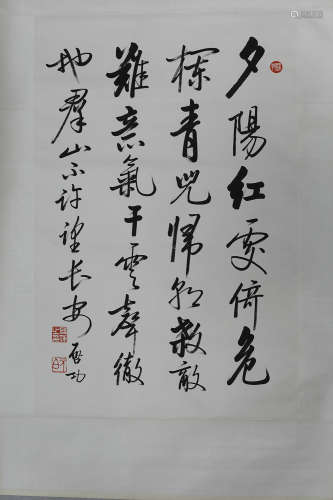 夕陽紅處倚危
欄青兕歸朝殺敵
難意氣干雲聲徹
地羣山不許望長安
啟功